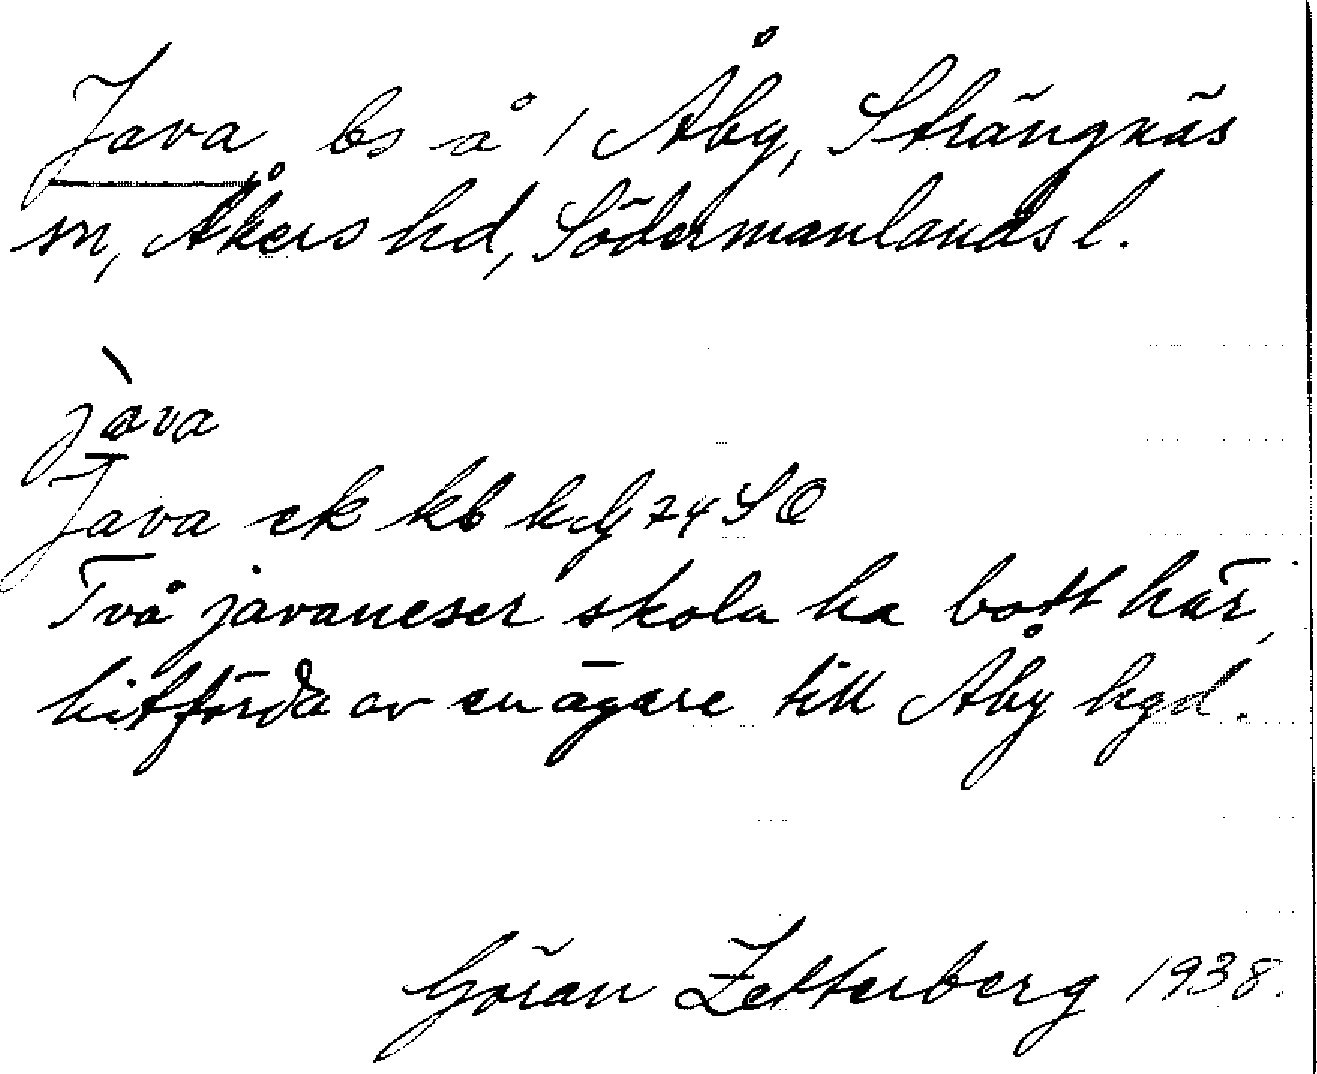 Java bs å 1 Åby, Strängnäs
sn, Åkers hd, Södermanlands l.
jàva
Java ek kb kg 74 SO
Två javaneser skola ha bott här,
hitförda av en ägare till Åby hgd.
Göran Zetterberg 1938.